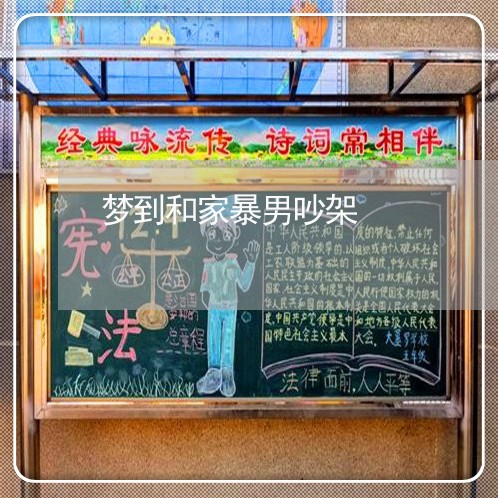 经典咏流传 诗词常相伴
梦到和家暴男吵架
宪
法
公平
公正
总章程
中华人民共和国
是工人阶级领导的,以
工农联盟为基础的
人民民主专政的社会主义
国家,社会主义制度是中
华人民共和国的根本制
度,中国共产党领导是中
国特色社会主义最本
质的特征,禁止任何
组织或者个人破坏社会
主义制度,中华人民共和
国的一切权利属于人民,
人民行使国家权力的机
关是全国人民代表大会
和地方各级人民代表
大会.
五年级
法律面前,人人平等